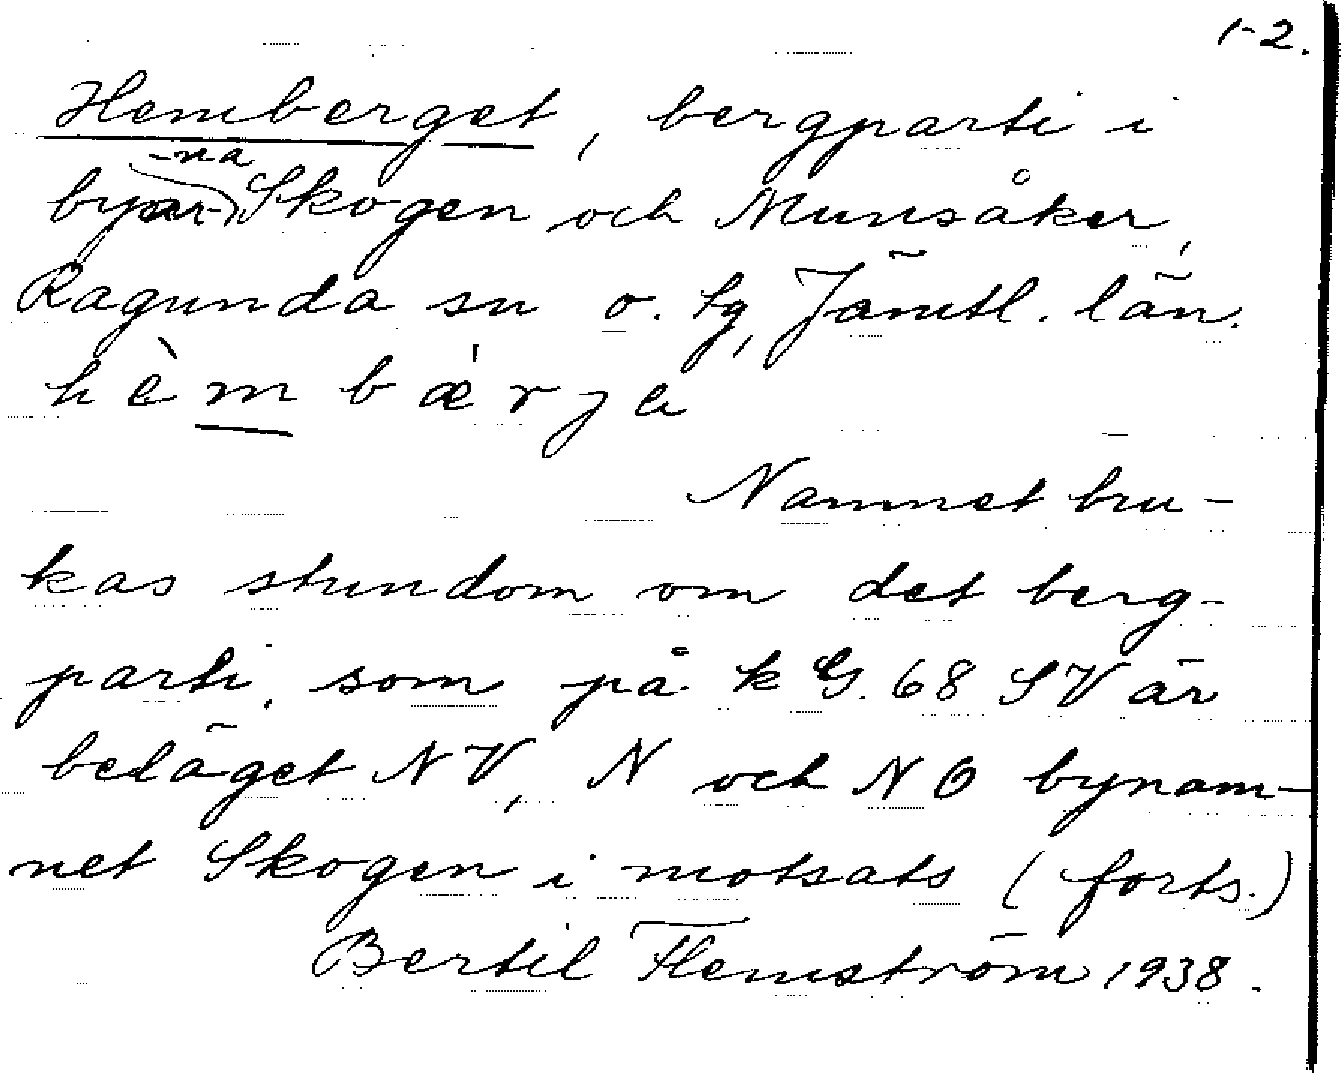 1-2.
Hemberget, bergparti i
byarna Skogen och Munsåker,
Ragunda sn o. tg, Jämtl. län.
hèmbæ̀rje
Namnet bru-
kas stundom om det berg-
parti, som på k G. 68 SV är
beläget NV, N och NO bynam-
net Skogen i motsats (forts.)
Bertil Flemström 1938.